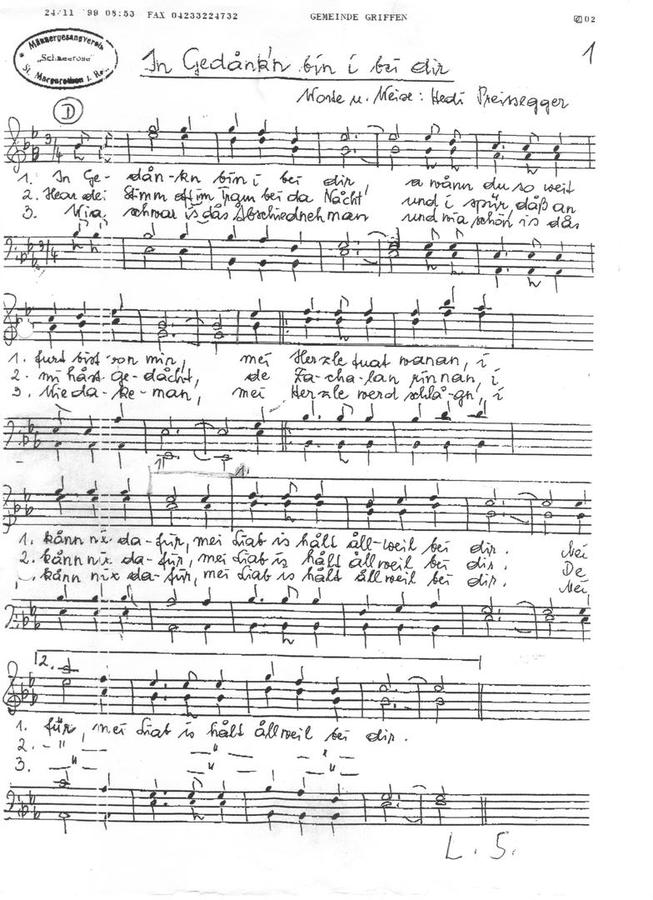 24/11 '99 08:53 FAX 04233224732 GEMEINDE GRIFFEN 02
Männergesangverein
"Schneerose"
St. Margarethen i.
1
In Gedånk'n bin i bei dir
Worte u. Weise: Hedi Preissegger
D
1. In Ge- dån-kn bin i bei dir, a wånn du so weit
2. Hear dei Stimm oft im Tram bei da Nåcht und i spür, dåß an
3. Wia schwar is dås Åbschiednehman und wia schön is dås
1. furt bist von mir, mei Herzle tuat wanan, i
2. mi håst ge-dåcht, de Za-cha-lan rinnan, i
3. Wieda-ke-man, mei Herzle werd schlå-gn, i
1.
1. kånn nix da-für, mei Liab is hålt åll-weil bei dir. Mei
2. kånn nix da-für, mei Liab is hålt ållweil bei dir. De
kånn nix da-für, mei Liab is hålt ållweil bei dir. Mei
2.
1. für, mei Liab is hålt ållweil bei dir.
2. - " -
3. - " -
L. S.